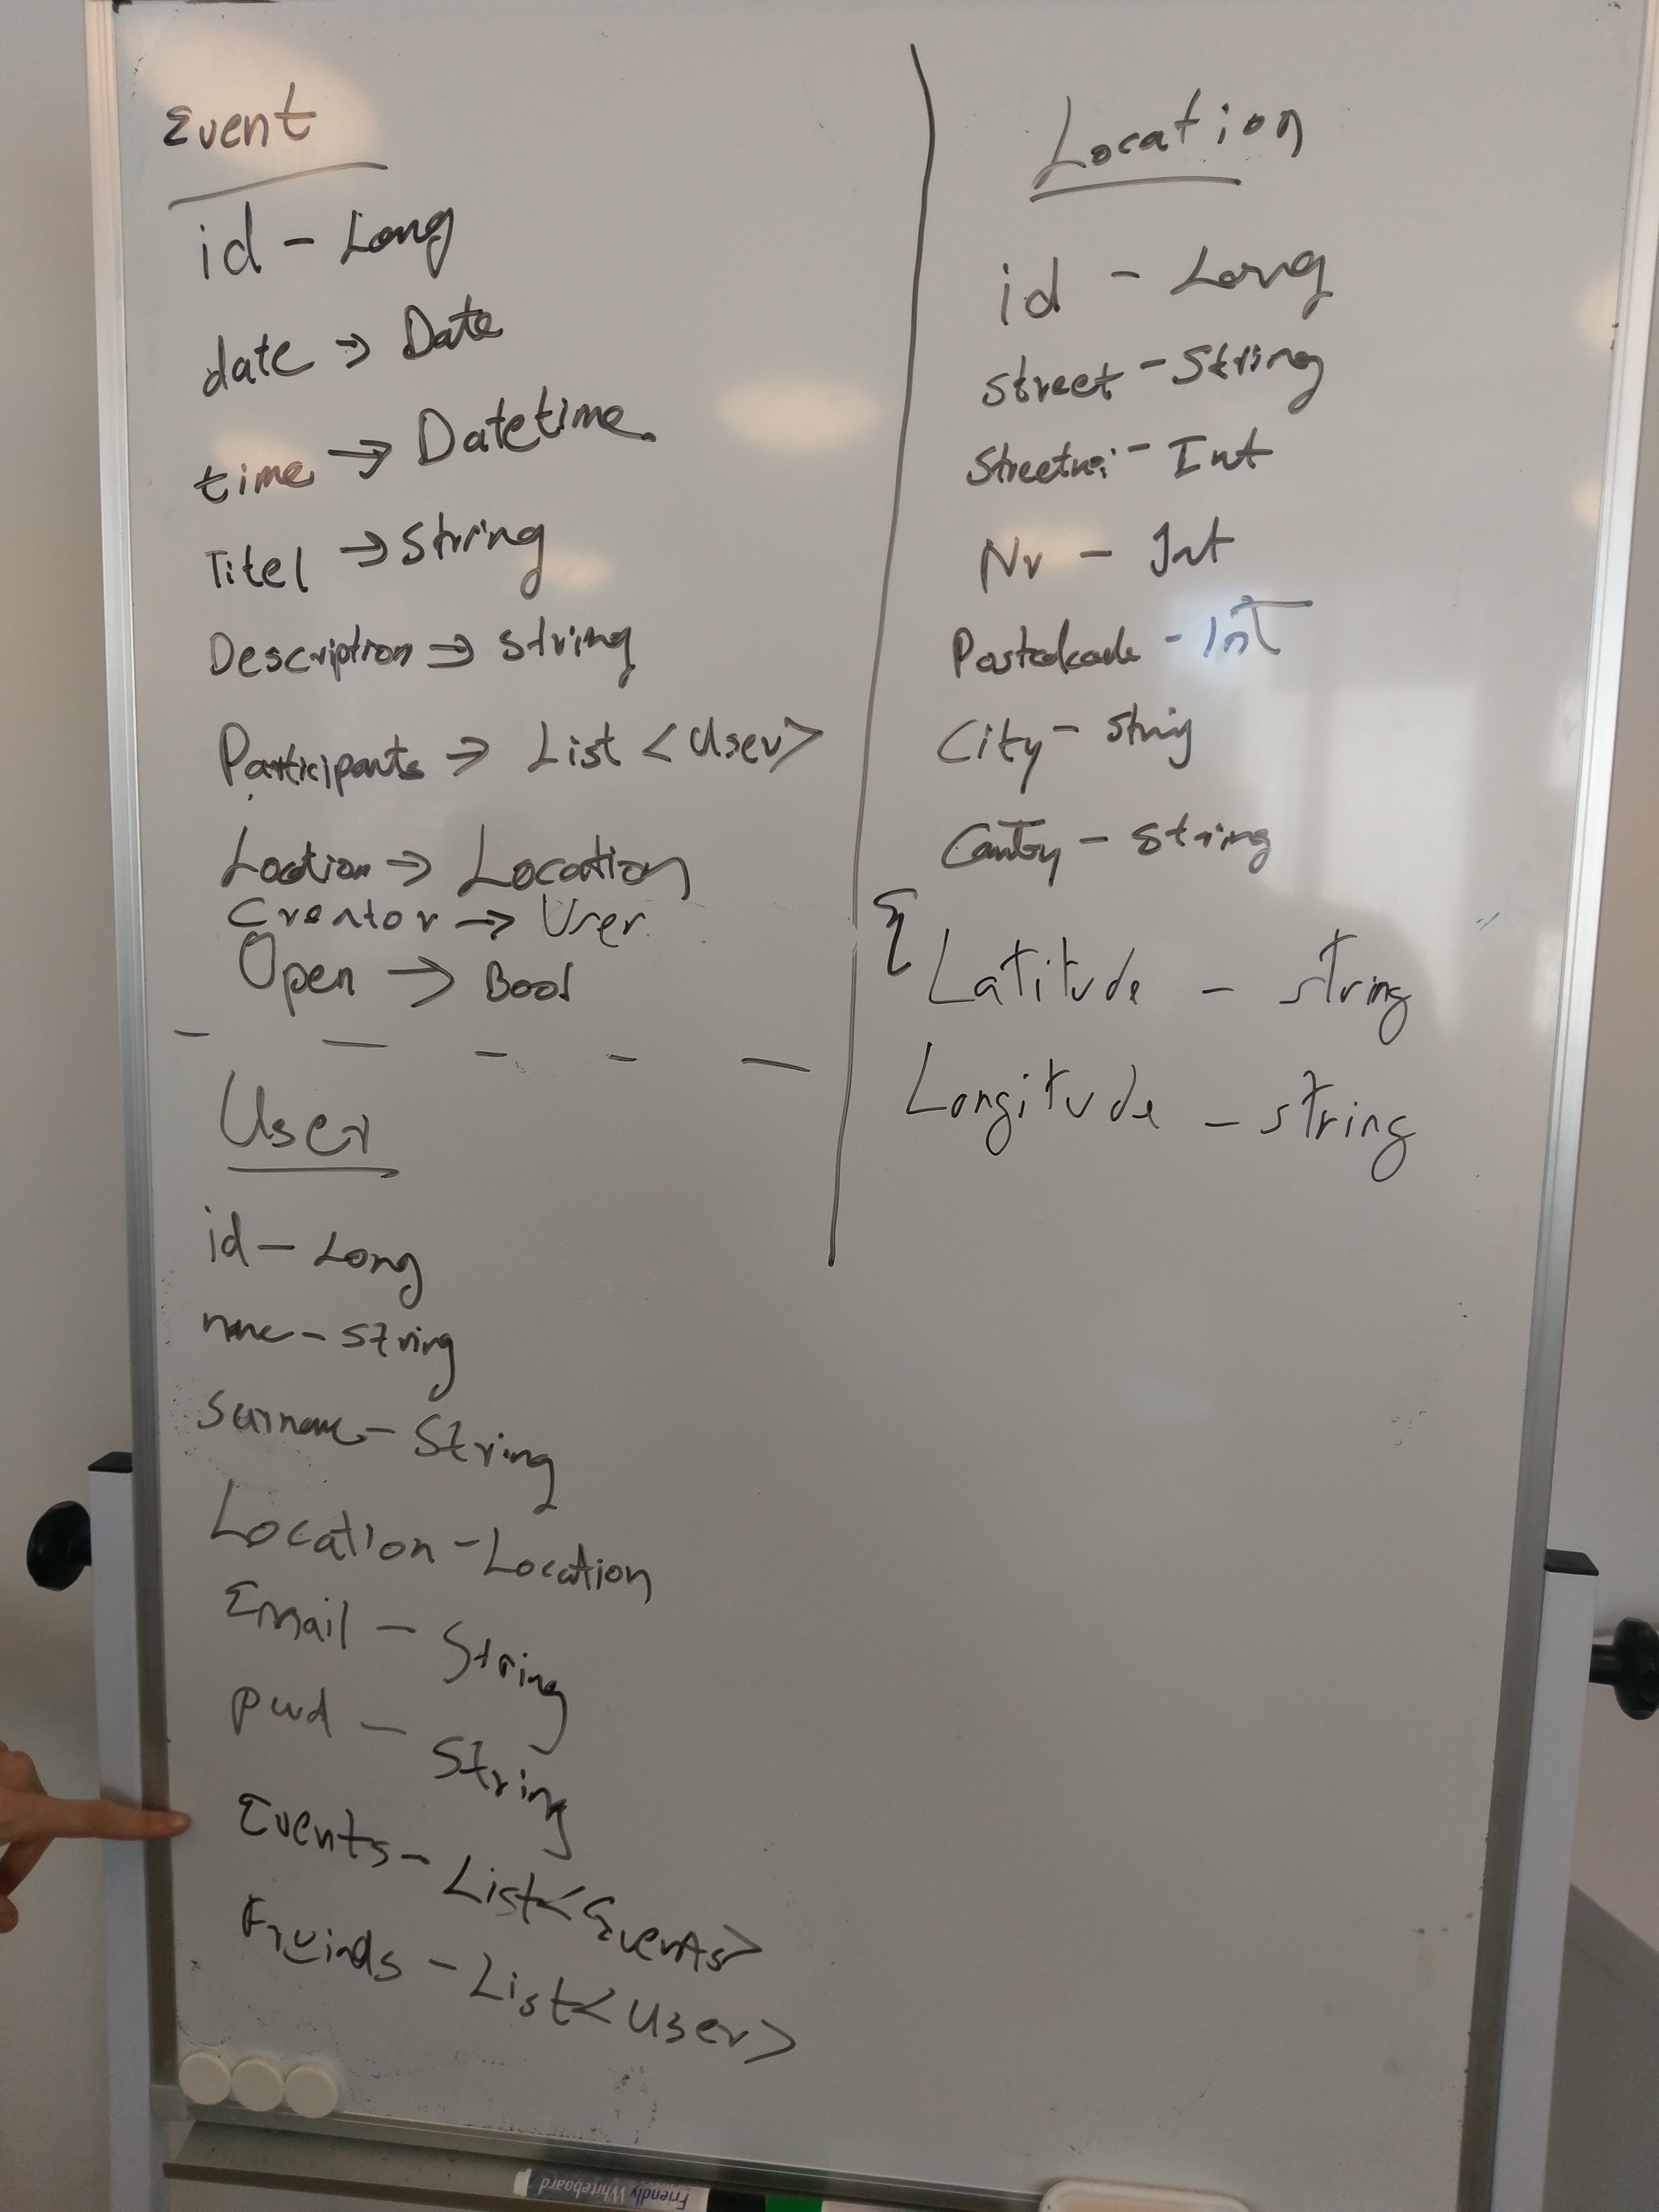 Event
id - Long
date → Date
time → Datetime
Titel → String
Description → String
Participants → List <User>
Location → Location
Creator → User
Open → Bool
User
id - Long
name - String
Surname - String
Location - Location
Email - String
pwd - String
Events - List<Events>
Freinds - List<User>
Location
id - Long
Street - String
Streetnr: - Int
Nr - Int
Postalcode - Int
City - String
Country - String
{ Latitude - string
Longitude - string
Friendly Whiteboard